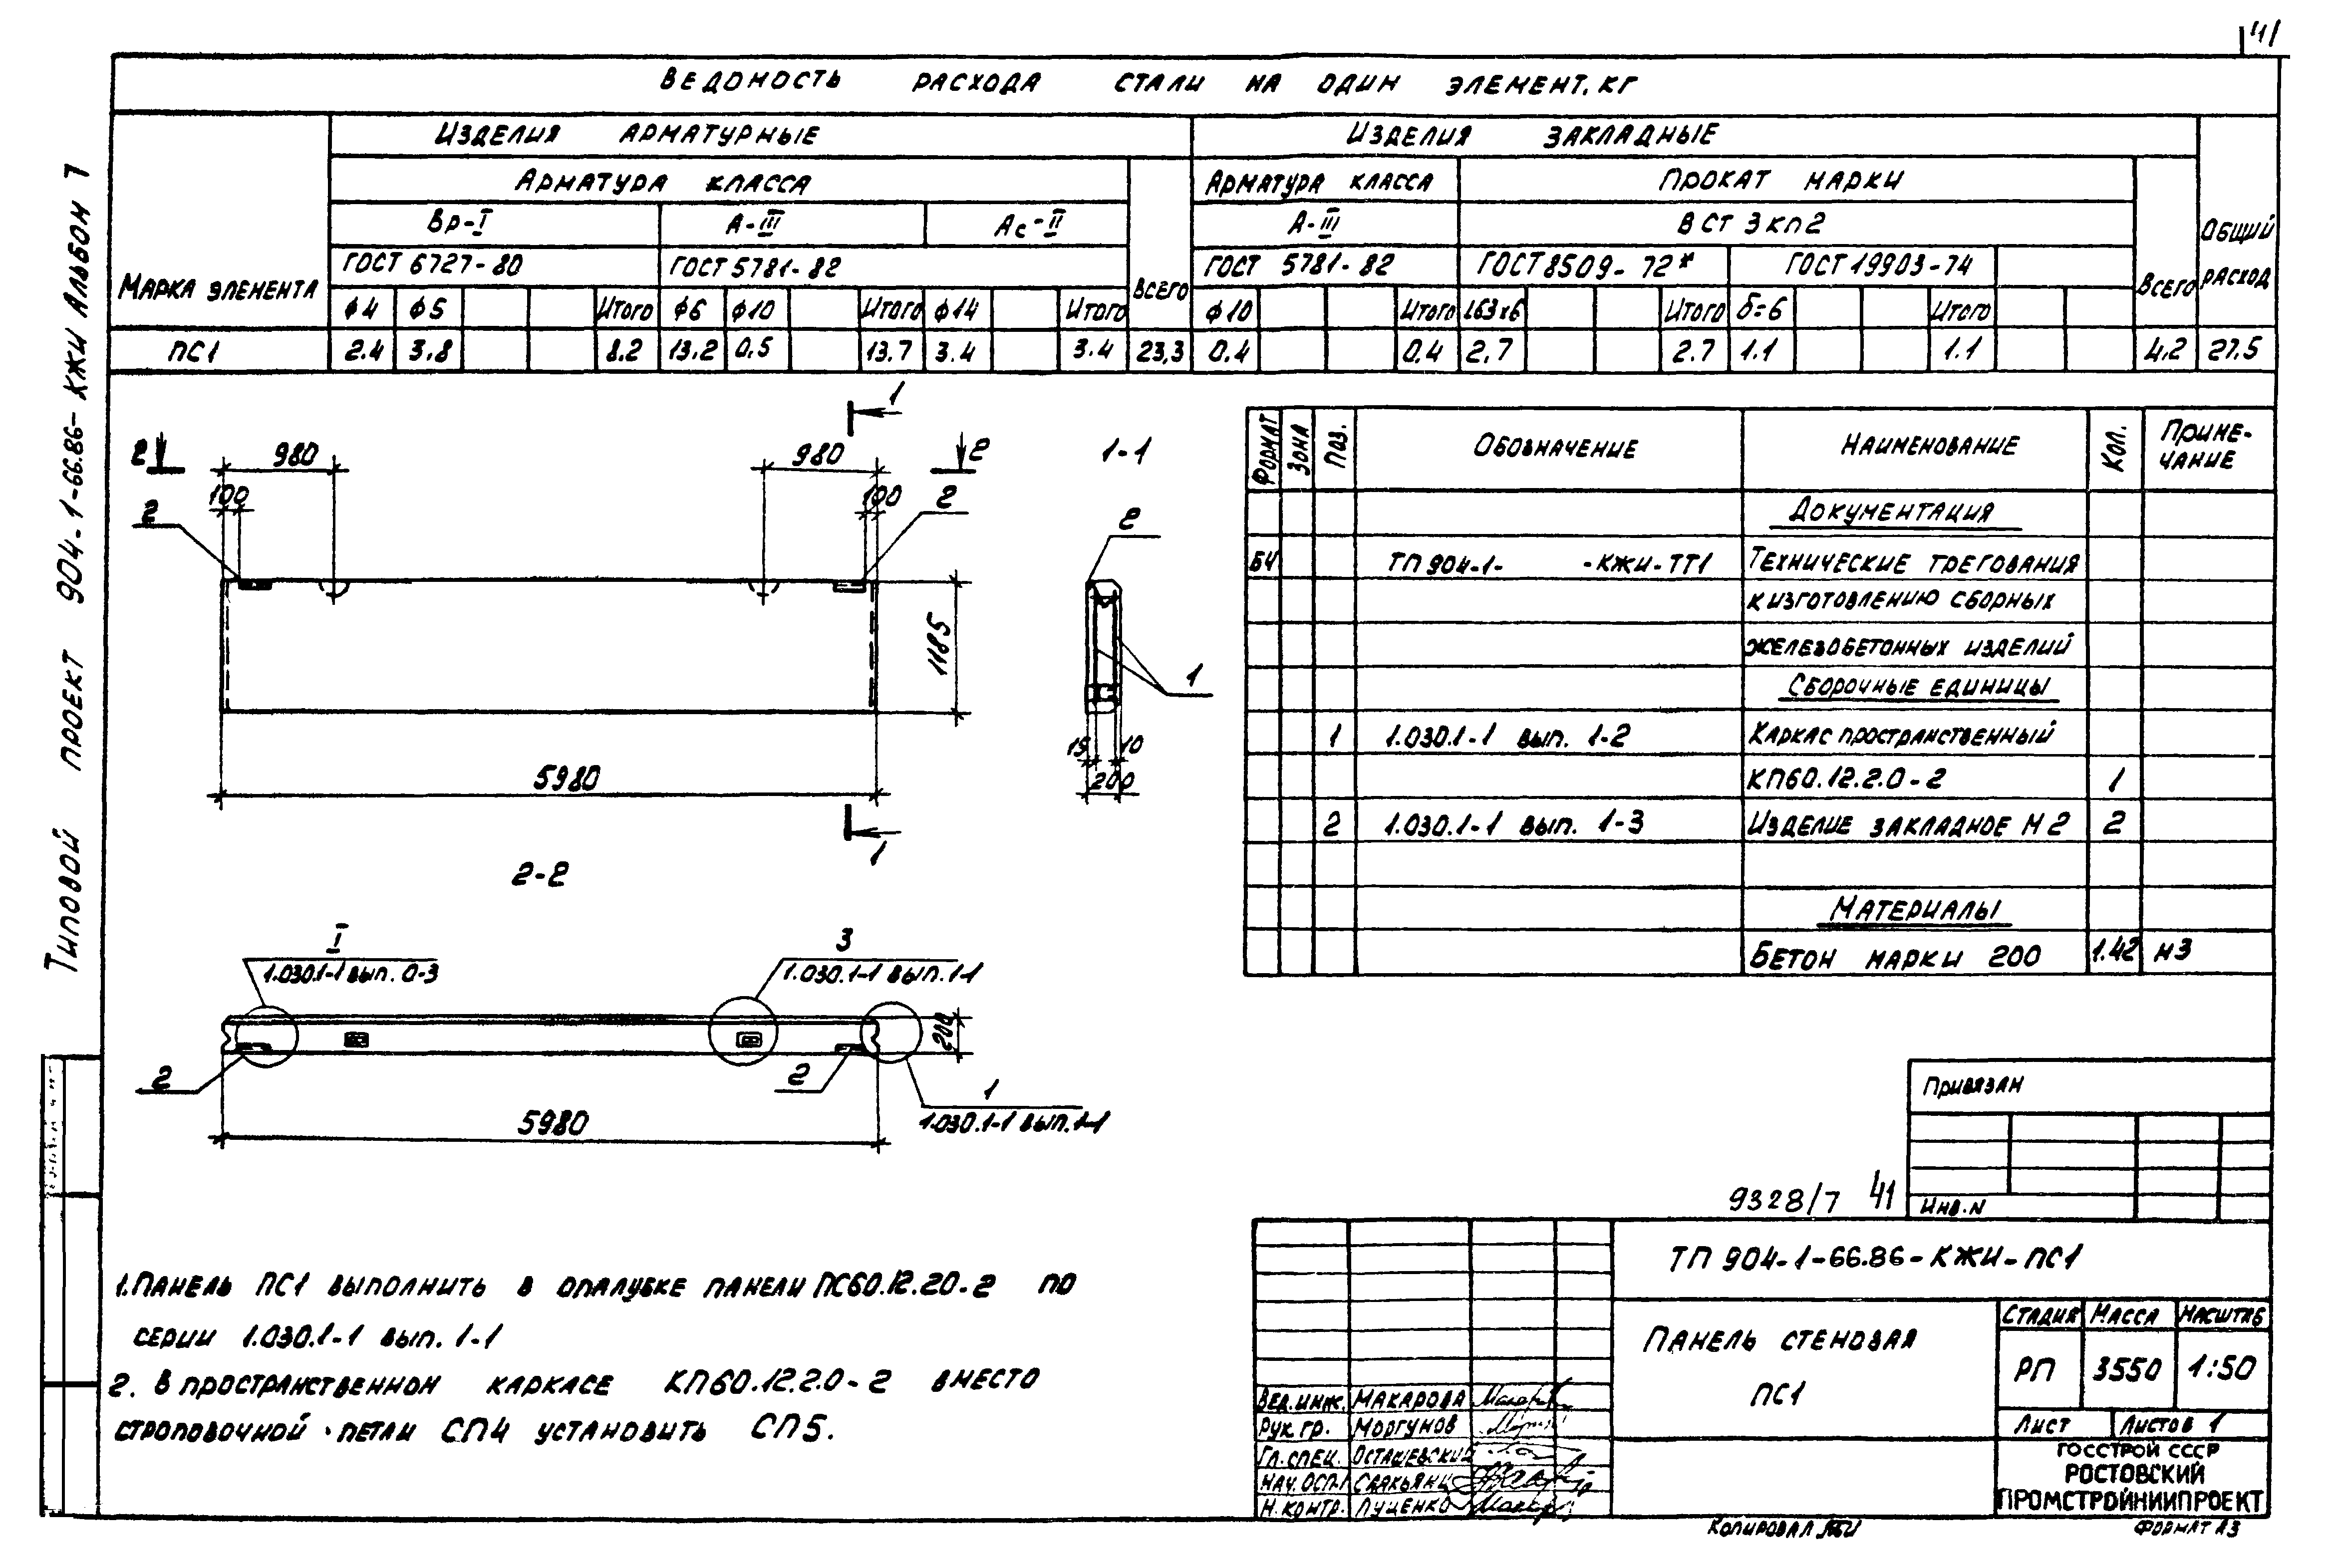 41
ВЕДОМОСТЬ РАСХОДА СТАЛИ НА ОДИН ЭЛЕМЕНТ, КГ
ИЗДЕЛИЯ АРМАТУРНЫЕ ИЗДЕЛИЯ ЗАКЛАДНЫЕ
АРМАТУРА КЛАССА АРМАТУРА КЛАССА ПРОКАТ МАРКИ
Вр-I А-III Ас-II А-III В СТ 3 КП2
ГОСТ 6727-80 ГОСТ 5781-82 ГОСТ 5781-82 ГОСТ 8509-72* ГОСТ 19903-74
МАРКА ЭЛЕМЕНТА ВСЕГО ВСЕГО ОБЩИЙ РАСХОД
ф4 ф5 ИТОГО ф6 ф10 ИТОГО ф14 ИТОГО ф10 ИТОГО L63х6 ИТОГО δ=6 ИТОГО
ПС1 2.4 3.8 8.2 13.2 0.5 13.7 3.4 3.4 23,3 0.4 0.4 2.7 2.7 1.1 1.1 4.2 27.5
ТИПОВОЙ ПРОЕКТ 904-1-66.86-КЖИ АЛЬБОМ 7
1
2 980 980 2
100 100
2 2
1185
5980
1
1-1
2
1
15 10
200
2-2
I
1.030.1-1 ВЫП. 0-3
3
1.030.1-1 ВЫП. 1-1
200
2 2
1
1.030.1-1 ВЫП. 1-1
5980
ФОРМАТ ЗОНА ПОЗ. ОБОЗНАЧЕНИЕ НАИМЕНОВАНИЕ КОЛ. ПРИМЕ-
ЧАНИЕ
ДОКУМЕНТАЦИЯ
БЧ ТП 904-1- -КЖИ-ТТ1 ТЕХНИЧЕСКИЕ ТРЕБОВАНИЯ
К ИЗГОТОВЛЕНИЮ СБОРНЫХ
ЖЕЛЕЗОБЕТОННЫХ ИЗДЕЛИЙ
СБОРОЧНЫЕ ЕДИНИЦЫ
1 1.030.1-1 ВЫП. 1-2 КАРКАС ПРОСТРАНСТВЕННЫЙ
КП60.12.2.0-2 1
2 1.030.1-1 ВЫП. 1-3 ИЗДЕЛИЕ ЗАКЛАДНОЕ М2 2
МАТЕРИАЛЫ
БЕТОН МАРКИ 200 1.42 М3
ПРИВЯЗАН
ИНВ. N
9328/7 41
1. ПАНЕЛЬ ПС1 ВЫПОЛНИТЬ В ОПАЛУБКЕ ПАНЕЛИ ПС60.12.20-2 ПО
СЕРИИ 1.030.1-1 ВЫП. 1-1
2. В ПРОСТРАНСТВЕННОМ КАРКАСЕ КП60.12.2.0-2 ВМЕСТО
СТРОПОВОЧНОЙ ПЕТЛИ СП4 УСТАНОВИТЬ СП5.
ТП 904-1-66.86-КЖИ-ПС1
ПАНЕЛЬ СТЕНОВАЯ
ПС1
СТАДИЯ МАССА МАСШТАБ
РП 3550 1:50
ЛИСТ ЛИСТОВ 1
ГОССТРОЙ СССР
РОСТОВСКИЙ
ПРОМСТРОЙНИИПРОЕКТ
ВЕД. ИНЖ. МАКАРОВА
РУК. ГР. МОРГУНОВ
ГЛ. СПЕЦ. ОСТАШЕВСКИЙ
НАЧ. ОСП-1 СААКЬЯНЦ
Н. КОНТР. ЛУЦЕНКО
КОПИРОВАЛ
ФОРМАТ А3